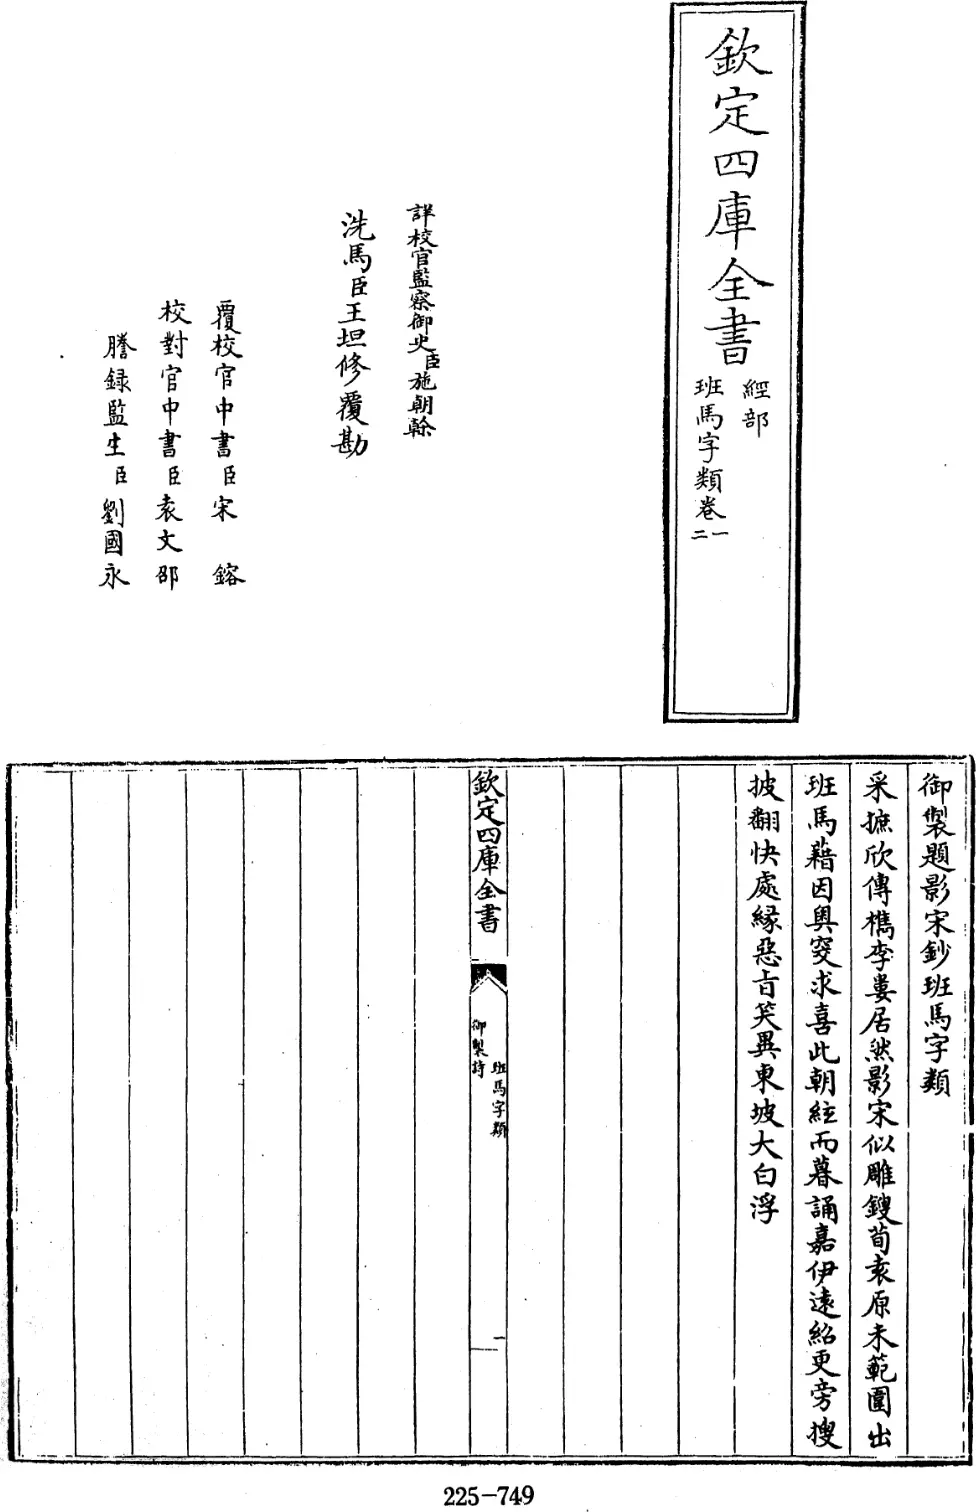 欽定四庫全書
經部
班馬字類卷一
二
詳校官監察御史臣施朝榦
洗馬臣王坦修覆勘
覆校官中書臣宋鎔
校對官中書臣袁文邵
謄録監生臣劉國永
御製題影宋鈔班馬字類
采摭欣傳檇李婁居然影宋似雕鎪荀袁原未範圍出
班馬藉因奧窔求喜此朝紸而暮誦嘉伊遠紹更旁搜
披翻快處縁惡旨笑異東坡大白浮
欽定四庫全書
班馬字類
御製詩
一
225-749